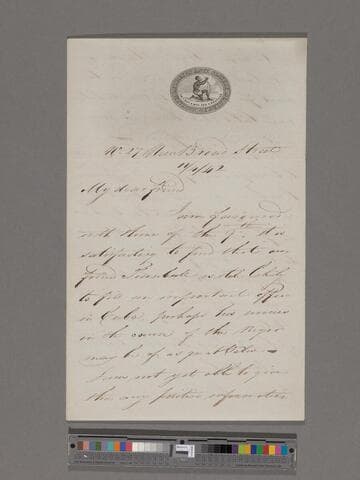 No 27 New Broad Street
My dear friend
I am favoured
with thine of the 7th. It is
satisfactory to find that our
friend Turnbull is still likely
to fill an important office
in Cuba. Perhaps his services
in the cause of the Negro
may be of as great value
I am not yet able to give
thee any positive information